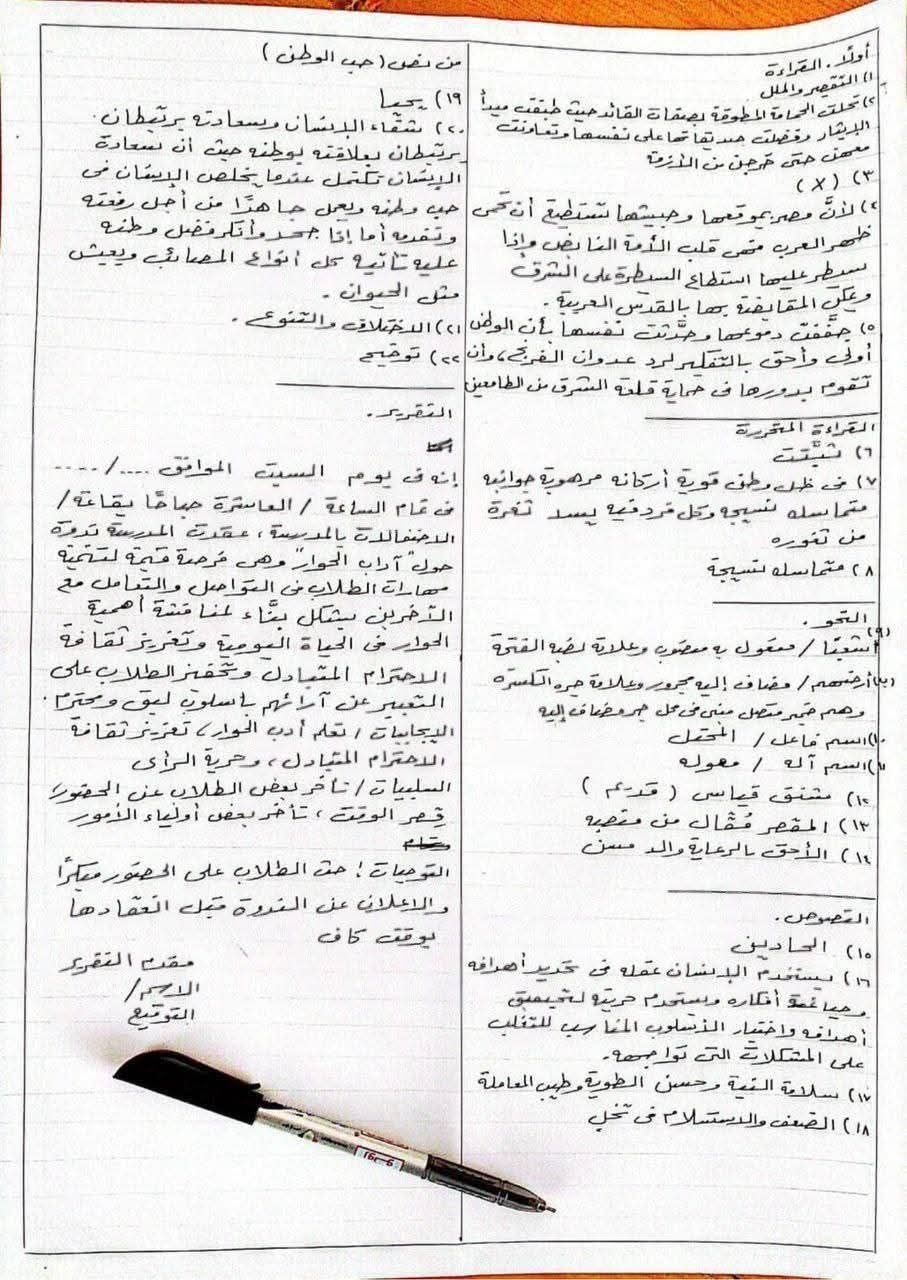 أولًا. القراءة
١) التقصير والملل
٢) تحلت الحمامة المطوقة بصفات القائد حيث طبقت مبدأ
الإيثار وفضلت صديقاتها على نفسها وتعاونت
معهن حتى خرجن من الأزمة
٣) (X)
٤) لأنَّ مصر بموقعها وجيشها تستطيع أن تحمى
ظهر العرب فهى قلب الأمة النابض وإذا
سيطر عليها استطاع السيطرة على الشرق
ويمكن المقايضة بها بالقدس العربية.
٥) جفَّفت دموعها وحدَّثت نفسها بأن الوطن
أولى وأحق بالتفكير لرد عدوان الفرنج، وأن
تقوم بدورها فى حماية قلعة الشرق من الطامعين
القراءة المتحررة
٦) تثبَّتت
٧) فى ظل وطن قوية أركانه مرهوبة جوانبه
متماسك نسيجه وكل فرد فيه يسد ثغرة
من ثغوره
٨) متماسك نسيجة
النحو.
٩)
شيئًا / مفعول به منصوب وعلامة نصبه الفتحة
أرضهم / مضاف إليه مجرور وعلامة جره الكسرة
وهم ضمير متصل مبنى فى محل جر مضاف إليه
١٠) اسم فاعل / المحتل
١١) اسم آلة / معوله
١٢) مشتق قياسى (قديم)
١٣) المقصر مُقال من منصبه
١٤) الأحق بالرعاية والد مسن
النصوص.
١٥) الحادين
١٦) يستخدم الإنسان عقله فى تحديد أهدافه
وصياغة أفكاره ويستخدم حريته لتحقيق
أهدافه واختيار الأسلوب المناسب للتغلب
على المشكلات التى تواجهه.
١٧) سلامة النية وحسن الطوية وطيب المعاملة
١٨) الضعف والاستسلام فى
من نص (حب الوطن)
١٩) يحيا
٢٠) شقاء الإنسان وسعادته يرتبطان
يرتبطان بعلاقته بوطنه حيث أن سعادة
الإنسان تكتمل عندما يخلص الإنسان فى
حب وطنه ويعمل جاهدًا من أجل رفعته
وتقدمه أما إذا جحد وأنكر فضل وطنه
عليه تأتيه كل أنواع المصائب ويعيش
مثل الحيوان.
٢١) الاختلاف والتنوع.
٢٢) توضيح
التقرير.
إنه فى يوم السبت الموافق ..../....
فى تمام الساعة / العاشرة صباحًا بقاعة /
الاحتفالات بالمدرسة، عقدت المدرسة ندوة
حول "آداب الحوار" وهى فرصة قيمة لتنمية
مهارات الطلاب فى التواصل والتعامل مع
الآخرين بشكل بنَّاء لمناقشة أهمية
الحوار فى الحياة اليومية وتعزيز ثقافة
الاحترام المتبادل وتحفيز الطلاب على
التعبير عن آرائهم بأسلوب لبق ومحترم.
الإيجابيات / تعلم أدب الحوار، تعزيز ثقافة
الاحترام المتبادل، وحرية الرأى
السلبيات / تأخر بعض الطلاب عن الحضور،
قِصر الوقت، تأخر بعض أولياء الأمور
التوصيات: حث الطلاب على الحضور مبكرًا
والإعلان عن الندوة قبل انعقادها
بوقت كاف
مقدم التقرير
الاسم /
التوقيع